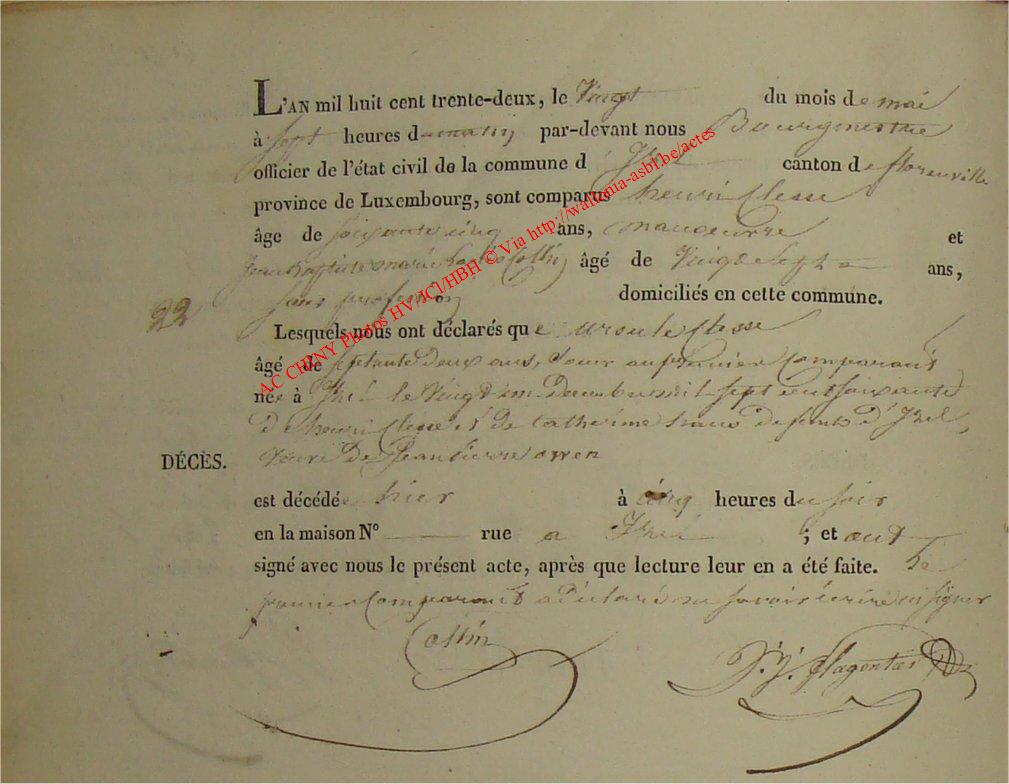 L'AN mil huit cent trente-deux, le Vingt du mois de mai
à sept heures du matin par-devant nous Bourgmestre
officier de l'état civil de la commune d'Izel canton de florenville
province de Luxembourg, sont comparus henri Clesse
âge de soixante cinq ans, manoeuvre et
Jean Baptiste marie Collin âgé de Vingt Sept ans,
sans profession domiciliés en cette commune.
22
Lesquels nous ont déclarés que ursule Clesse
âgé de septante deux ans, Soeur au premier Comparant
née à Izel le Vingt un Decembre mil sept cent soixante
de henri Clesse et de Catherine defunts d'Izel,
DÉCÈS. Veuve de Jean Pierre
est décédée hier à cinq heures du soir
en la maison N° rue a Izel ; et ont
signé avec nous le présent acte, après que lecture leur en a été faite. Le
premier Comparant a déclaré ne savoir écrire ni signer
Collin
J. J. flagontier
AC CHINY Photos HV/JCJ/HBH © Via http://wallonia-asbl.be/actes